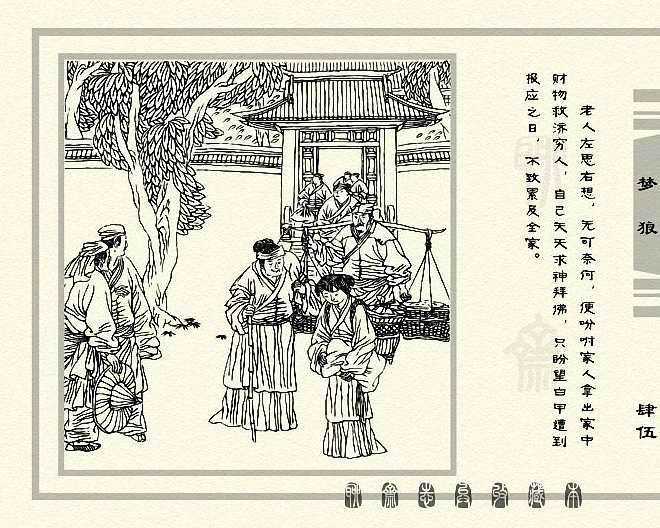 老人左思右想，无可奈何，便吩咐家人拿出家中
财物救济穷人，自己天天求神拜佛，只盼望白甲遭到
报应之日，不致累及全家。
梦狼
肆伍